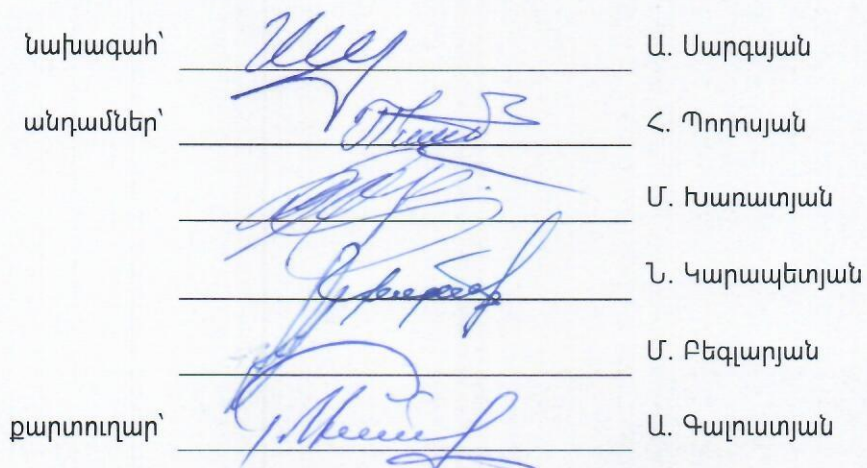 նախագահ՝ Ա. Սարգսյան
անդամներ՝ Հ. Պողոսյան
Մ. Խառատյան
Ն. Կարապետյան
Մ. Բեգլարյան
քարտուղար՝ Ա. Գալուստյան